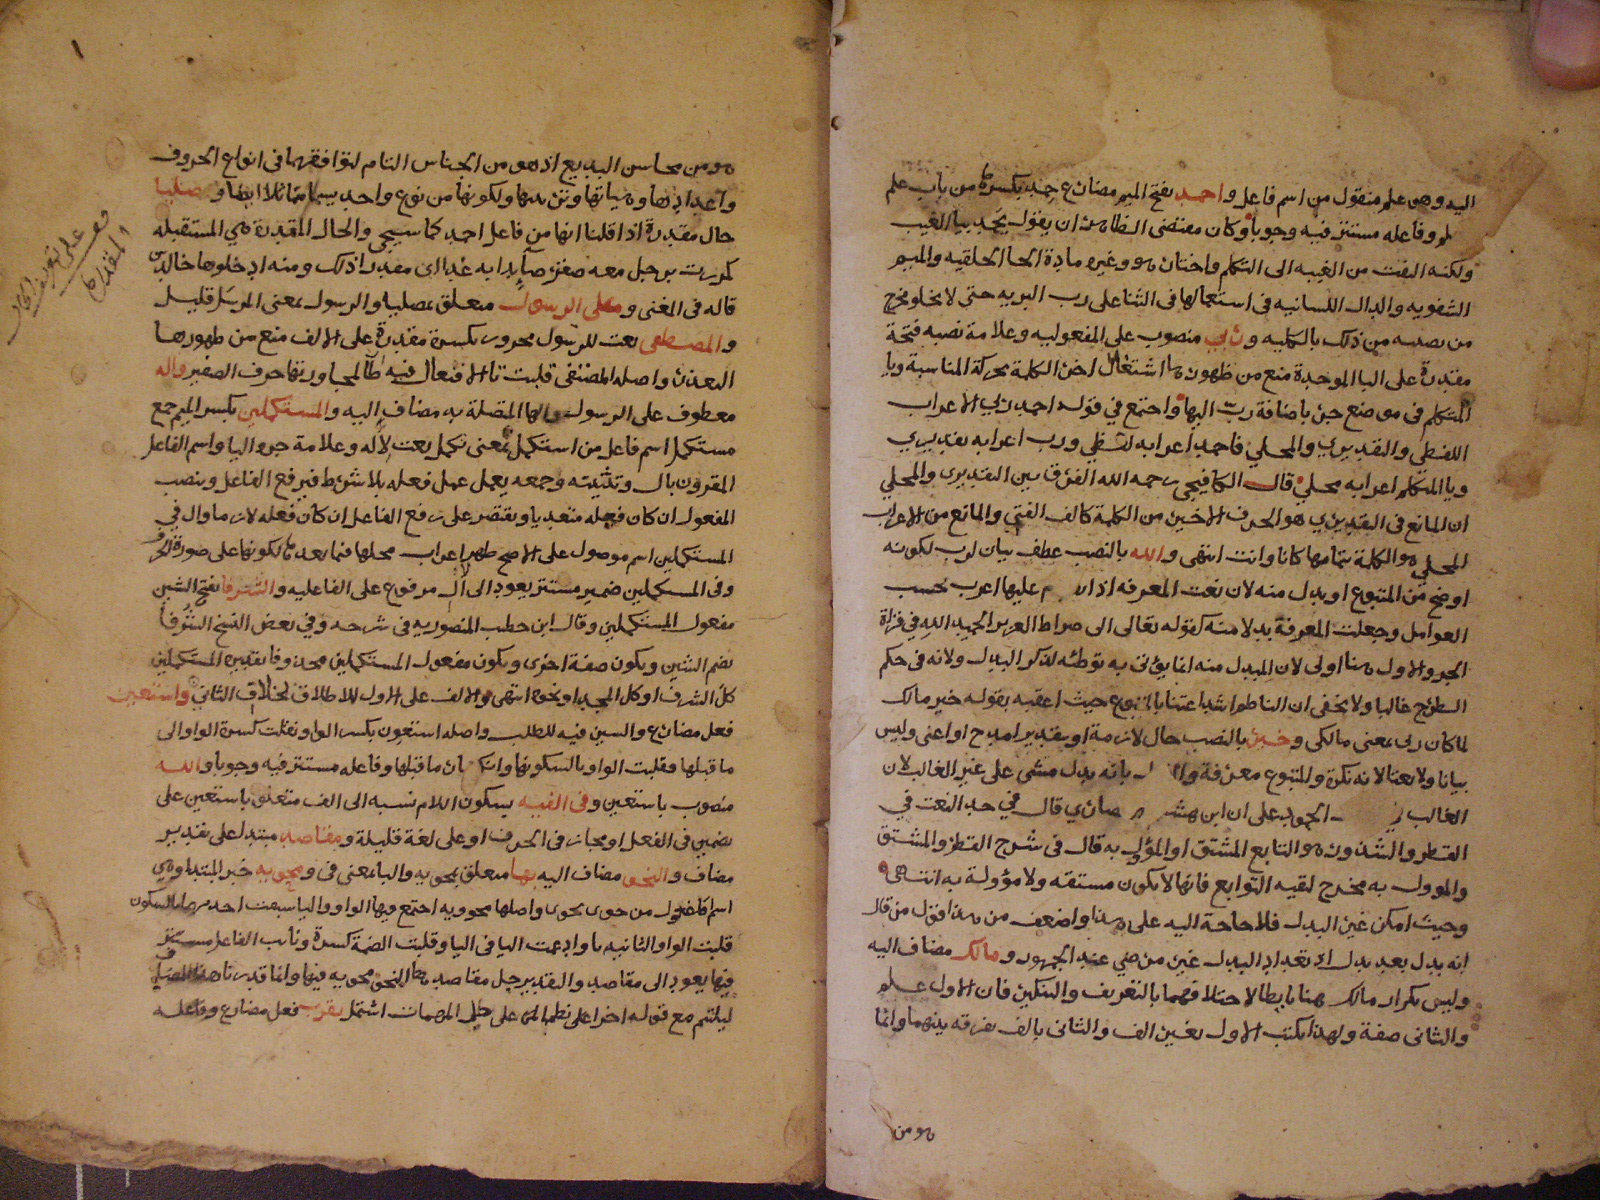 اليه وهو علم منقول من اسم فاعل واحمد بفتح الميم مضارع حمد بكسرها من باب علم
وفاعله مستتر فيه وجوبا وكان مقتضى الظاهر ان يقول يحمد بيا الغيب
ولكنه التفت من الغيبه الى التكلم واختار هو وغيره مادة الحا الحلقيه والميم
الشفويه والدال اللسانيه في استعمالها في الثنا على رب البريه حتى لا يخلو مخرج
من ذلك بالكليه وربي منصوب على المفعوليه وعلامة نصبه فتحة
مقدرة على البا الموحدة منع من ظهورها اشتغال اخر الكلمة بحركة المناسبة ويا
المتكلم في موضع جر باضافة رب اليها واجتمع في قوله احمد ربي الاعراب
اللفظي والتقديري والمحلي فاحمد اعرابه لفظي ورب اعرابه تقديري
ويا المتكلم اعرابه محلي قال الكافيجي رحمه الله الفرق بين التقديري والمحلي
ان المانع في التقديري هو الحرف الاخير من الكلمة كالف الفتى والمانع من الاعراب
المحلي هو الكلمة بتمامها كانا وانت انتهى والله بالنصب عطف بيان لرب لكونه
اوضح من المتبوع او بدل منه لان نعت المعرفه اذا عليها اعرب بحسب
العوامل وجعلت المعرفة بدلا منه كقوله تعالى الى صراط العزيز الحميد الله في قراة
الجر والاول هنا اولى لان المبدل منه انما يؤتى به توطئه لذكر البدل ولانه في حكم
الطرح غالبا ولا يخفى ان الناظم اشد اعتنا بالمتبوع حيث اعقبه بقوله خير مالك
لما كان ربي بمعنى مالكي وخير بالنصب حال لازمة او بتقدير امدح او اعني وليس
بيانا ولا نعتا لانه نكرة والمتبوع معرفة بانه بدل مشى على غير الغالب لان
الغالب في الجمود على ان ابن هشام قال في حد النعت في
القطر والشذور هو التابع المشتق او المؤول به قال في شرح القطر والمشتق
والموول به مخرج لبقيه التوابع فانها لا تكون مشتقه ولا مؤولة به انتهى
وحيث امكن غير البدل فلا حاجة اليه على هذا واضعف من هذا قول من قال
انه بدل بعد بدل اذ تعداد البدل غير مرضي عند الجمهور ومالك مضاف اليه
وليس تكرار مالك هنا بايطا لاختلافهما بالتعريف والتنكير فان الاول علم
والثاني صفة ولهذا يكتب الاول بغير الف والثاني بالف تفرقه بينهما وانما
هو من
هو من محاسن البديع اذ هو من الجناس التام لتوافقهما في انواع الحروف
واعدادها وهياتها وترتيبها ولكونها من نوع واحد يسمى متماثلا ايضا ومصليا
حال مقدرة اذا قلنا انها من فاعل احمد كما سيجي والحال المقدرة هي المستقبله
كمررت برجل معه صقر صايدا به غدا اي مقدرا ذلك ومنه ادخلوها خالدين
قاله في المغني وعلى الرسول متعلق بمصليا والرسول بمعنى المرسل قليل
والمصطفى نعت للرسول مجرور بكسرة مقدرة على الالف منع من ظهورها
التعذر واصله المصتفى قلبت تا الافتعال فيه طا لمجاورتها حرف الصفير واله
معطوف على الرسول والها المتصلة به مضاف اليه والمستكملين بكسر الميم جمع
مستكمل اسم فاعل من استكمل بمعنى تكمل نعت لاله وعلامة جره اليا واسم الفاعل
المقرون بال وتثنيته وجمعه يعمل عمل فعله بلا شرط فيرفع الفاعل وينصب
المفعول ان كان فعله متعديا ويقتصر على رفع الفاعل ان كان فعله لازما وال في
المستكملين اسم موصول على الاصح ظهر اعراب محلها فيما بعدها لكونها على صورة الحرف
وفي المستكملين ضمير مستتر يعود الى ال مرفوع على الفاعليه والشرفا بفتح الشين
مفعول المستكملين وقال ابن خطيب المنصوريه في شرحه وفي بعض النسخ الشرفا
بضم الشين ويكون صفة اخرى ويكون مفعول المستكملين محذوفا تقديره المستكملين
كل الشرف او كل المجد او نحوه انتهى والالف على الاول للاطلاق بخلاف الثاني واستعين
فعل مضارع والسين فيه للطلب واصله استعون بكسر الواو نقلت كسرة الواو الى
ما قبلها فقلبت الواو يا لسكونها وانكسار ما قبلها وفاعله مستتر فيه وجوبا والله
منصوب باستعين وفي الفيه بسكون اللام نسبه الى الف متعلق باستعين على
تضمين في الفعل او مجاز في الحرف او على لغة قليلة ومقاصد مبتدا على تقدير
مضاف والنحو مضاف اليه بها متعلق بمحويه والبا بمعنى في ومحويه خبر المبتدا وهي
اسم مفعول من حوى يحوي واصلها محوويه اجتمع فيها الواو واليا سبقت احديهما بالسكون
قلبت الواو الثانيه يا وادغمت اليا في اليا وقلبت الضمة كسرة ونائب الفاعل مستتر
فيها يعود الى مقاصد والتقدير جل مقاصد النحو محويه فيها وانما قدرنا هذا المضاف
ليلتئم مع قوله اخرا على نظما على جل المهمات اشتمل تقرب فعل مضارع وفاعله